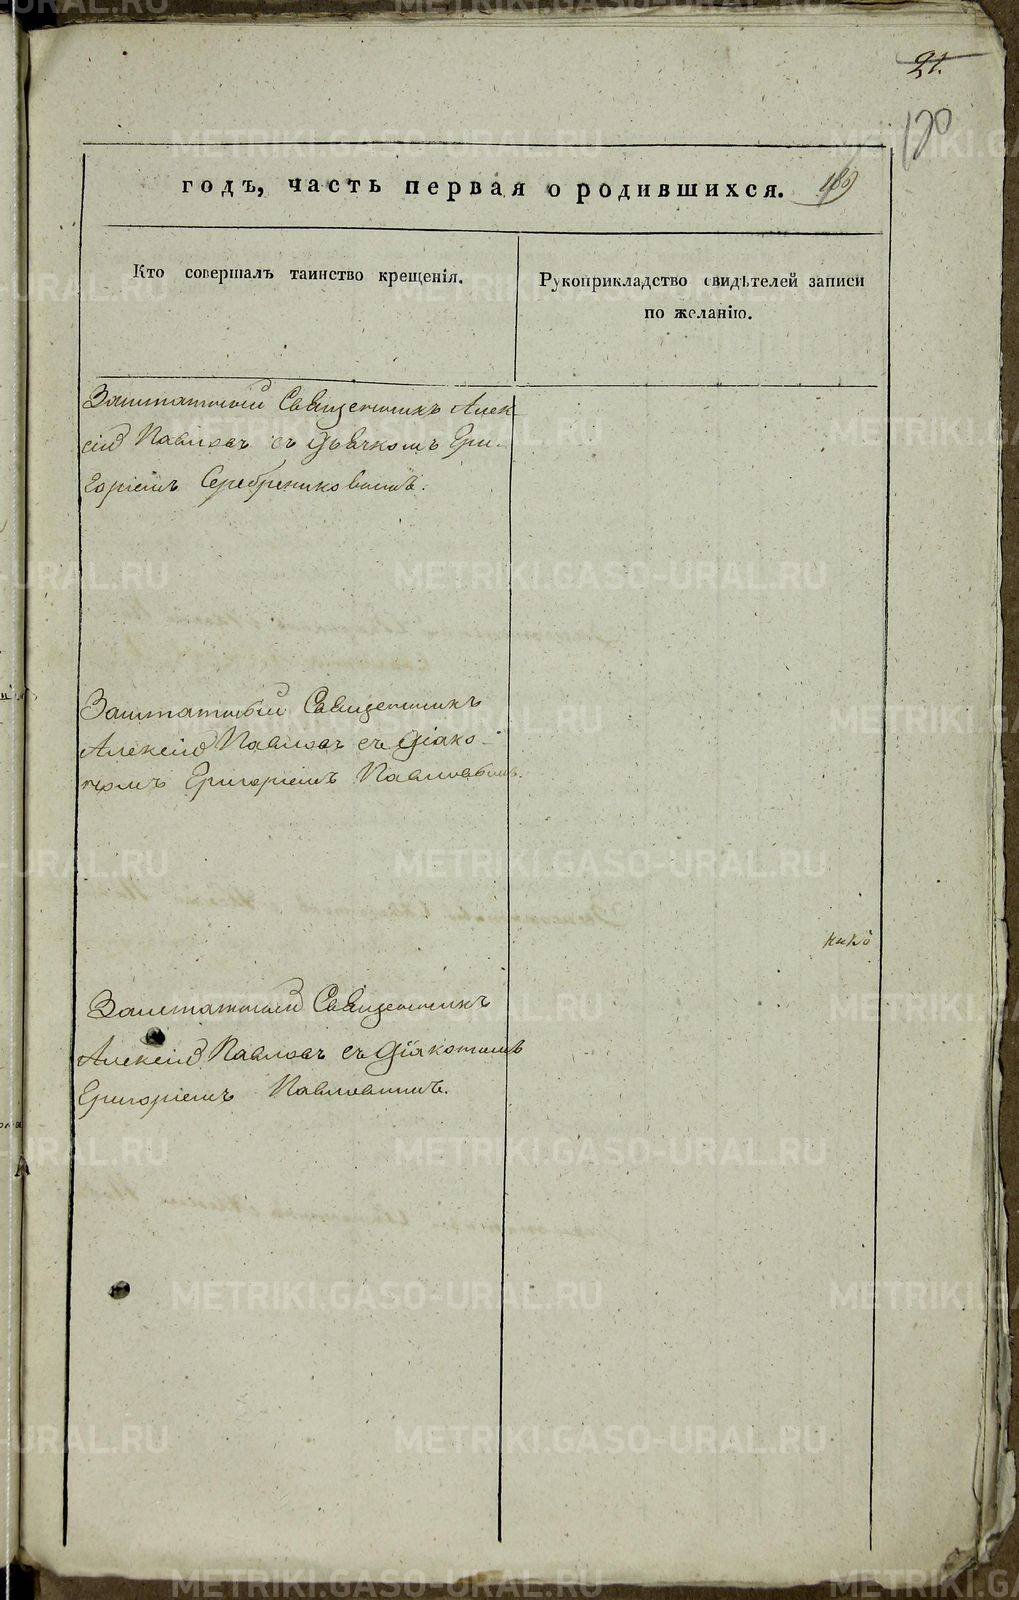 21.
170
годъ, часть первая о родившихся. 169
Кто совершалъ таинство крещенія.
Рукоприкладство свидѣтелей записи
по желанію.
Заштатный Священникъ Алек
сій Павловъ съ Дьячкомъ Гри-
горіемъ Серебрениковымъ.
Заштатный Священникъ
Алексій Павловъ съ Діако-
номъ Григоріемъ Павловымъ.
Заштатный Священникъ
Алексій Павловъ съ Діакономъ
Григоріемъ Павловымъ.
METRIKI.GASO-URAL.RU